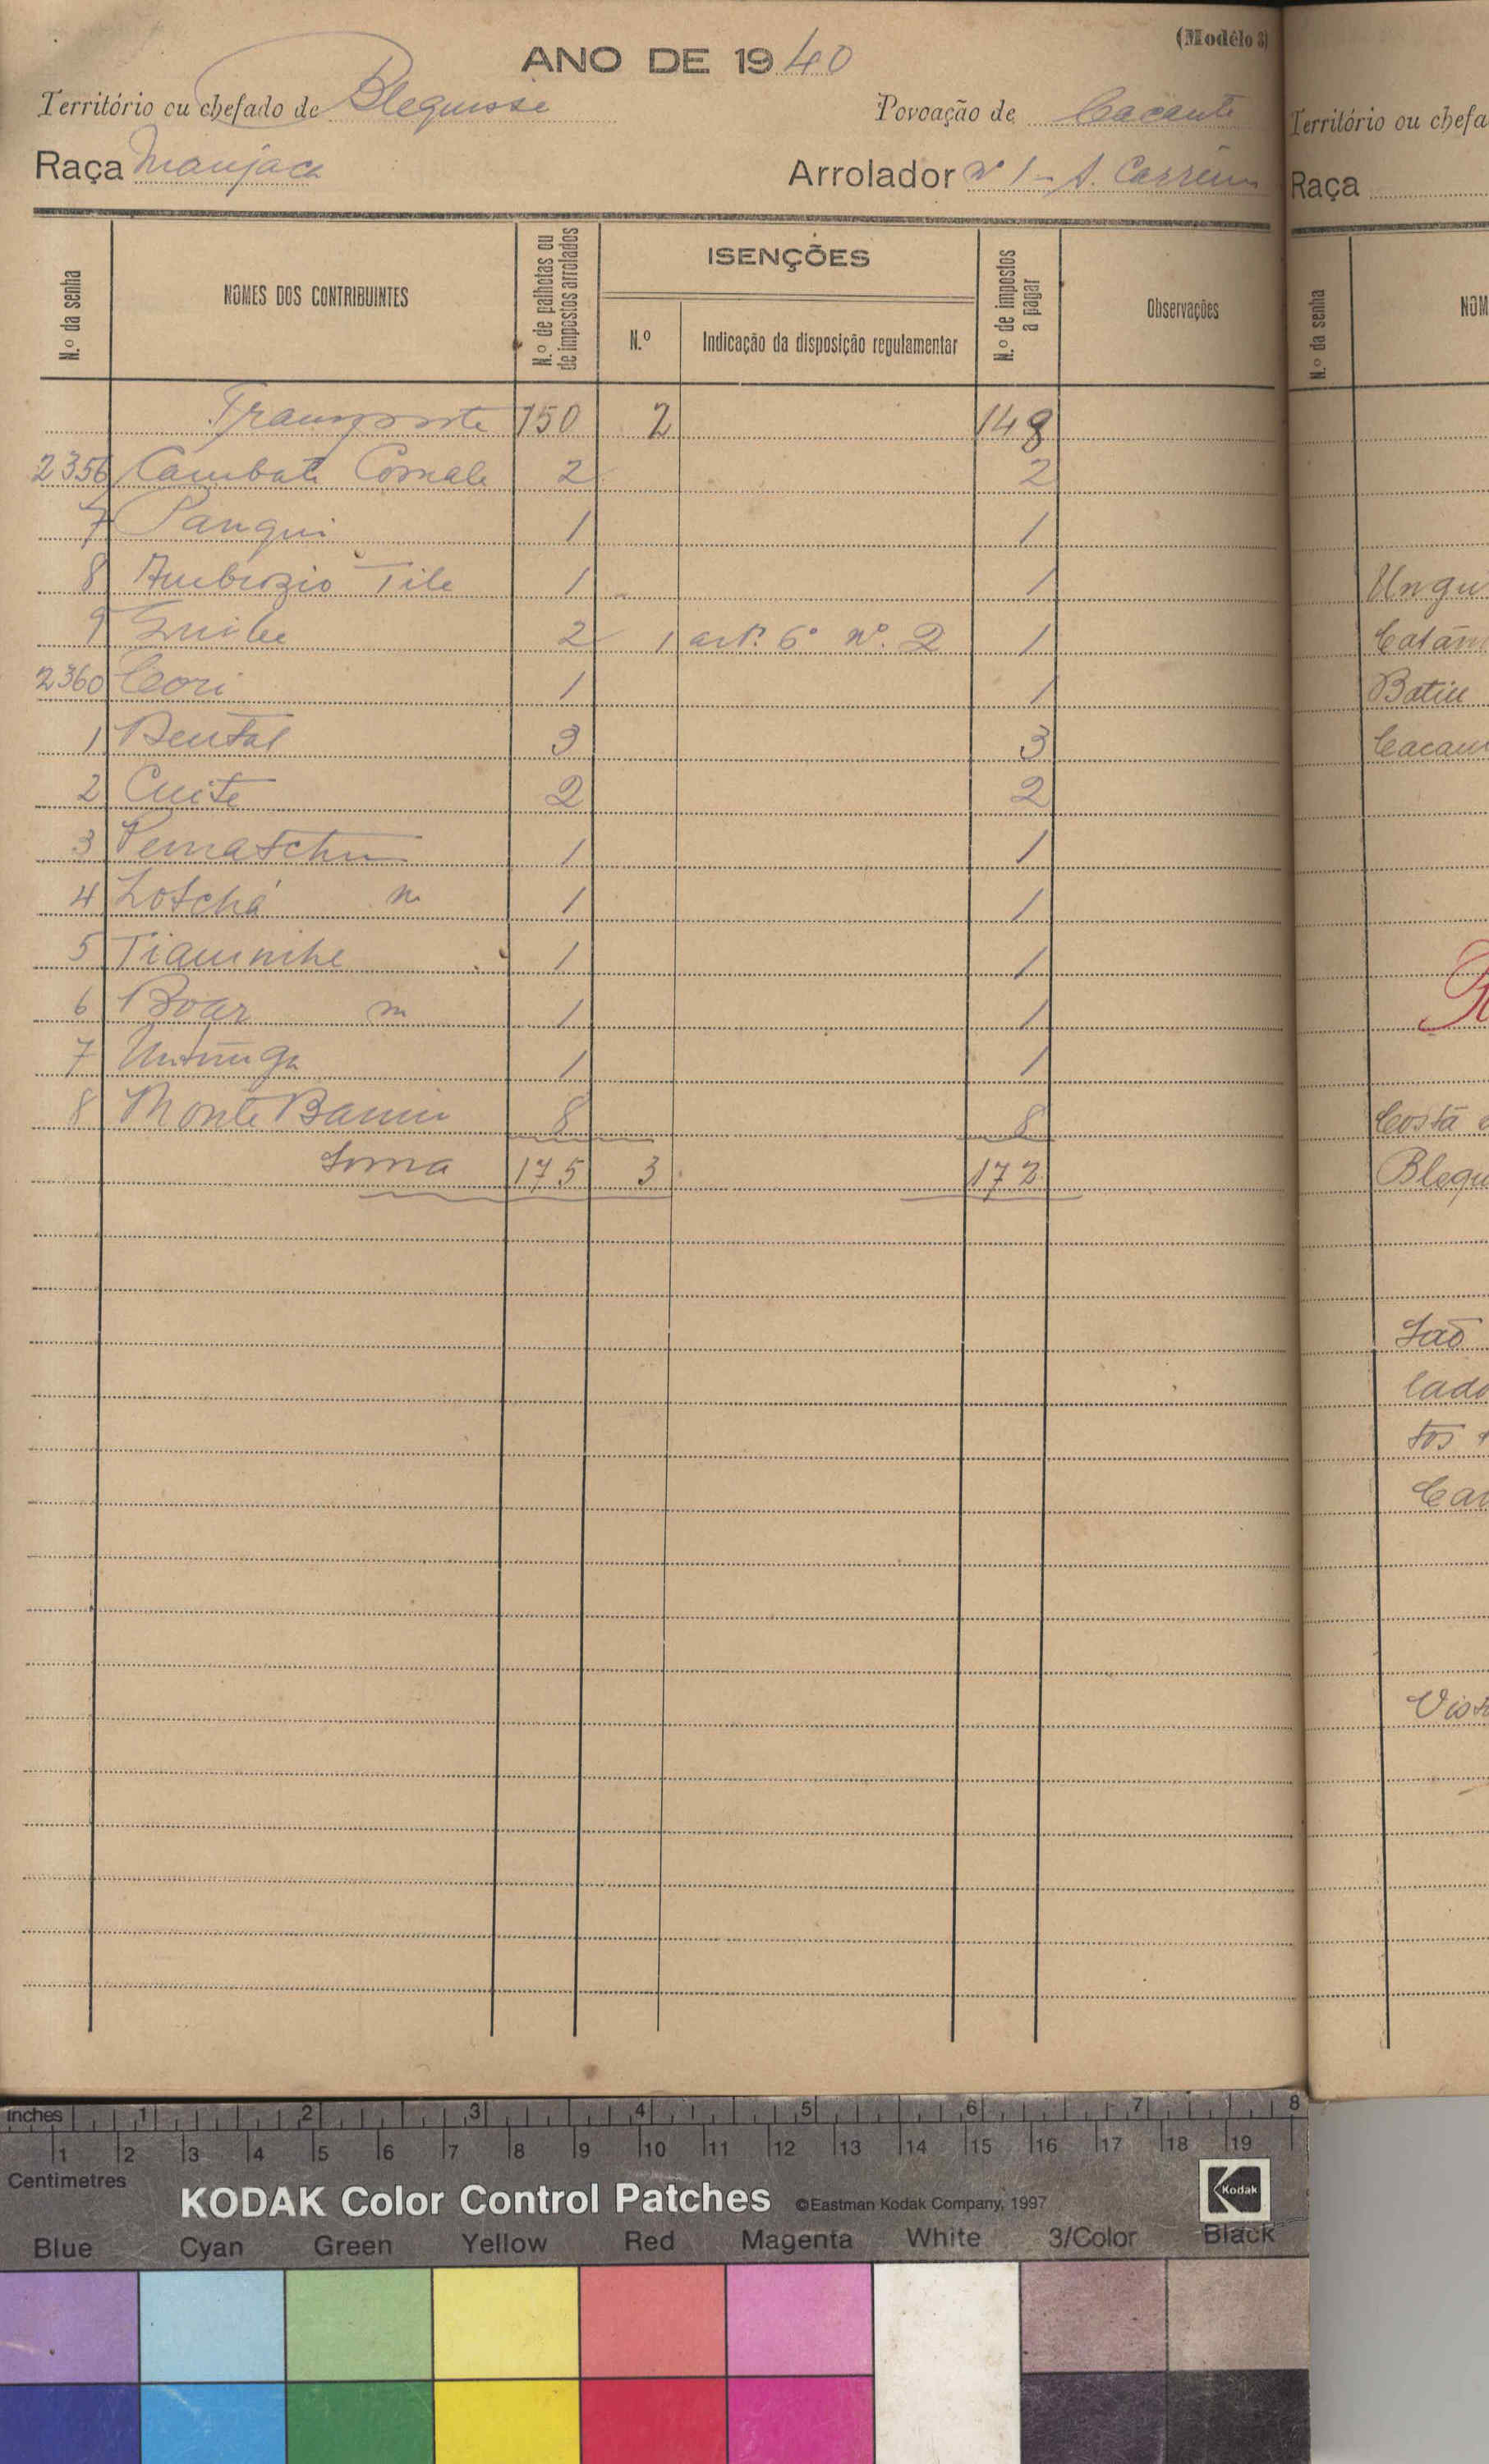 (Modêlo 3)
ANO DE 1940
Território ou chefado de Blequisse Povoação de Cacante
Raça Manjaca Arrolador nº 1 - A. Carreira
N.º da senha NOMES DOS CONTRIBUINTES N.º de palhotas ou de impostos arrolados ISENÇÕES N.º Indicação da disposição regulamentar N.º de impostos a pagar Observações
Transporte 150 2 148
2356 Cambate 2 2
7 Panqui 1 1
8 Ambrozio Tile 1 1
9 Guilee 2 1 artº. 6º nº. 2 1
2360 Cori 1 1
1 Bental 3 3
2 Cuite 2 2
3 1 1
4 Lotchá m 1 1
5 1 1
6 Boar m 1 1
7 1 1
8 Monte 8 8
Soma 175 3 172
Território ou chefa
Raça
N.º da senha NOM
Ungu
Catam
Batiu
Cacau
R
Costa
Blequ
São
lado
tos
Car
Vist
inches 1 2 3 4 5 6 7 8
1 2 3 4 5 6 7 8 9 10 11 12 13 14 15 16 17 18 19
Centimetres
KODAK Color Control Patches ©Eastman Kodak Company, 1997 Kodak
Blue Cyan Green Yellow Red Magenta White 3/Color Black